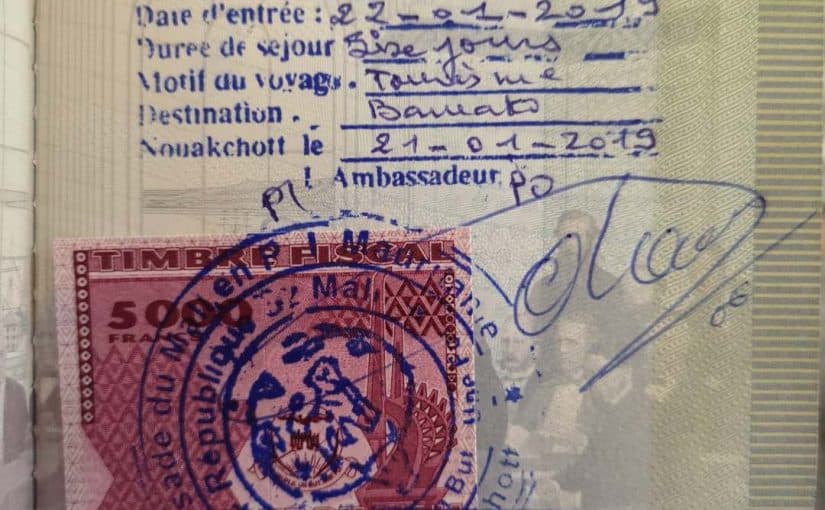 Date d'entrée : 22-01-2019
Durée de séjour Seize jours
Motif du voyage. Tourisme
Destination. Bamako
Nouakchott le 21-01-2019
Ambassadeur
TIMBRE FISCAL
5000
FRANCS
sade du Mali en R I Mauritanie
République du Mali
But
chott